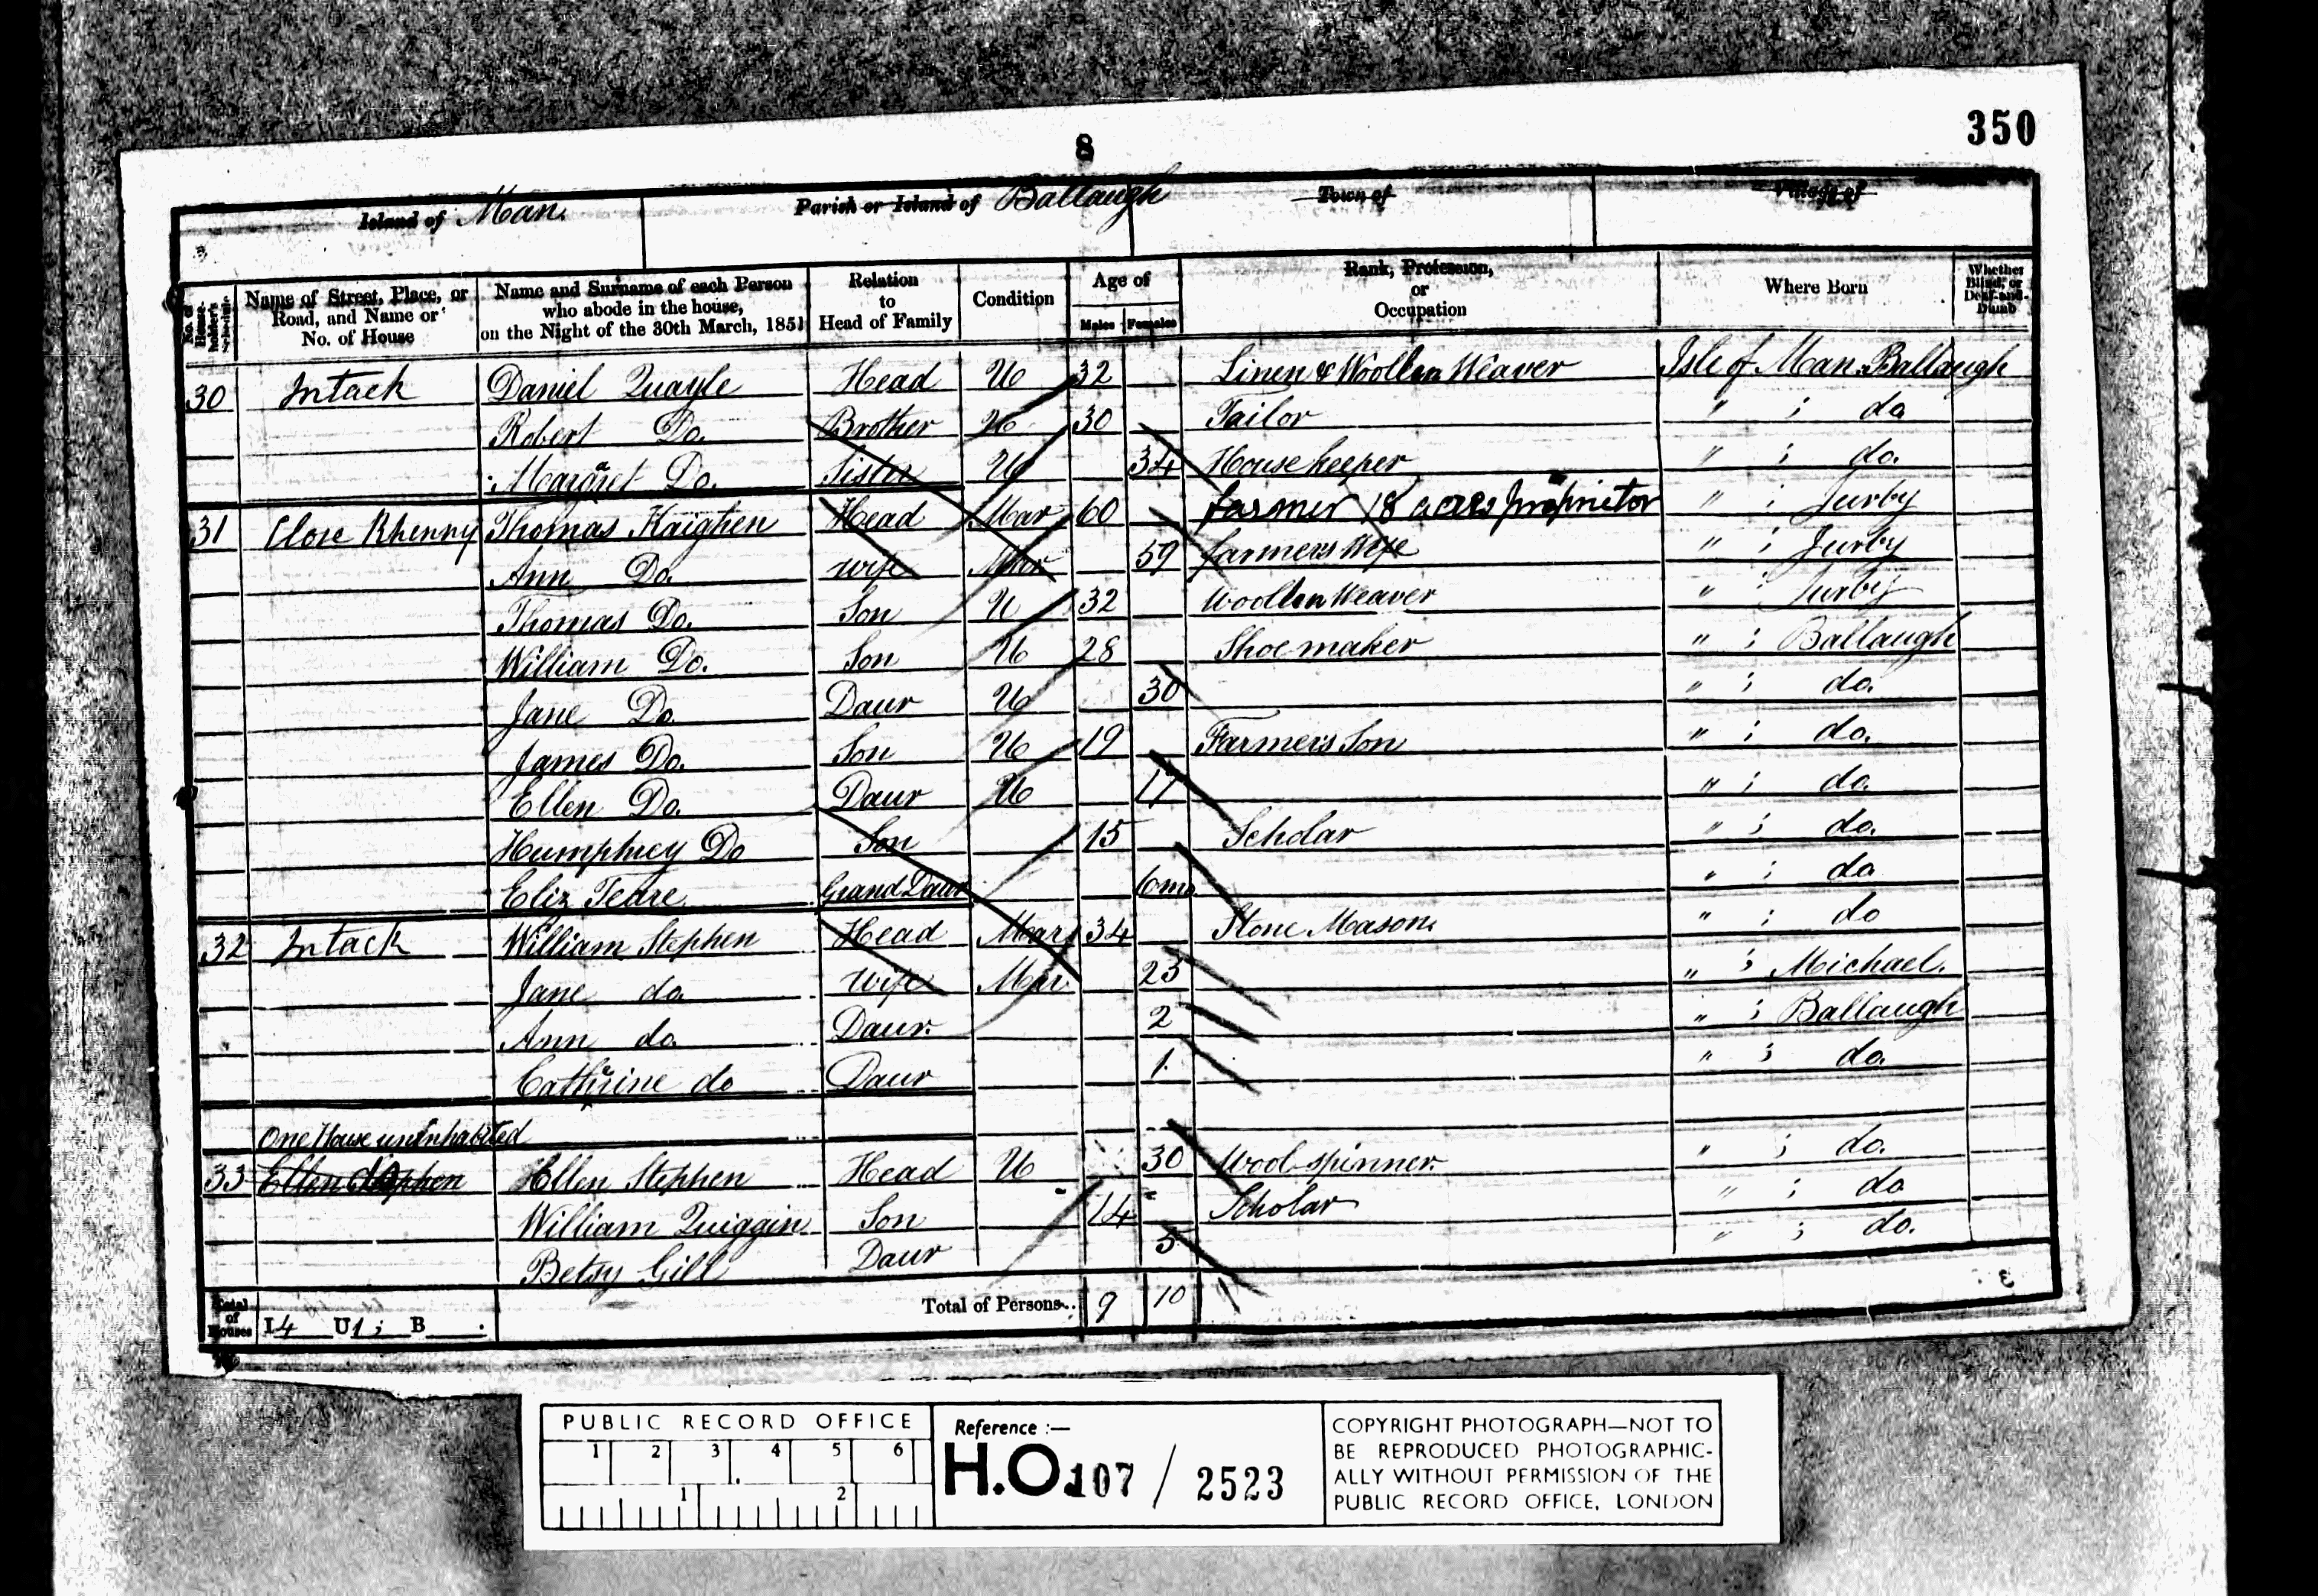 350
8
Island of Man.
Parish or Island of Ballaugh
Town of
Village of
No. of House-holder's Schedule
Name of Street, Place, or Road, and Name or No. of House
Name and Surname of each Person who abode in the house, on the Night of the 30th March, 1851
Relation to Head of Family
Condition
Age of
Males Females
Rank, Profession, or Occupation
Where Born
Whether Blind, or Deaf-and-Dumb
30 Intack Daniel Quayle Head U 32 Linen & Woollen Weaver Isle of Man Ballaugh
Robert Do. Brother U 30 Tailor " ; do
Margaret Do. Sister U 34 House keeper " ; do.
31 Close Rhenny Thomas Kaighen Head Mar 60 farmer 18 acres proprietor " ; Jurby
Ann Do. wife Mar 59 farmers Wife " ; Jurby
Thomas Do. Son U 32 Woollen Weaver " ; Jurby
William Do. Son U 28 Shoe maker " ; Ballaugh
Jane Do Daur U 30 " ; do.
James Do. Son U 19 Farmers Son " ; do.
Ellen Do. Daur U 17 " ; do.
Humphrey Do Son 15 Scholar " ; do.
Eliz Teare Grand Daur 6mo " ; do
32 Intack William Stephen Head Mar 34 Stone Mason. " ; do
Jane do. Wife Mar 23 " ; Michael.
Ann do. Daur. 2 " ; Ballaugh
Cathrine do Daur 1. " ; do.
One House uninhabited
33 Ellen Stephen Ellen Stephen Head U 30 Wool-spinner. " ; do.
William Quiggin Son 14 Scholar " ; do
Betsy Gill Daur 5 " ; do.
Total of Houses I 4 U 1 ; B
Total of Persons.. 9 10
PUBLIC RECORD OFFICE
1 2 3 4 5 6
1 2
Reference :—
H.O. 107 / 2523
COPYRIGHT PHOTOGRAPH—NOT TO
BE REPRODUCED PHOTOGRAPHIC-
ALLY WITHOUT PERMISSION OF THE
PUBLIC RECORD OFFICE, LONDON